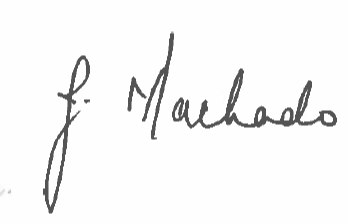 J. Machado